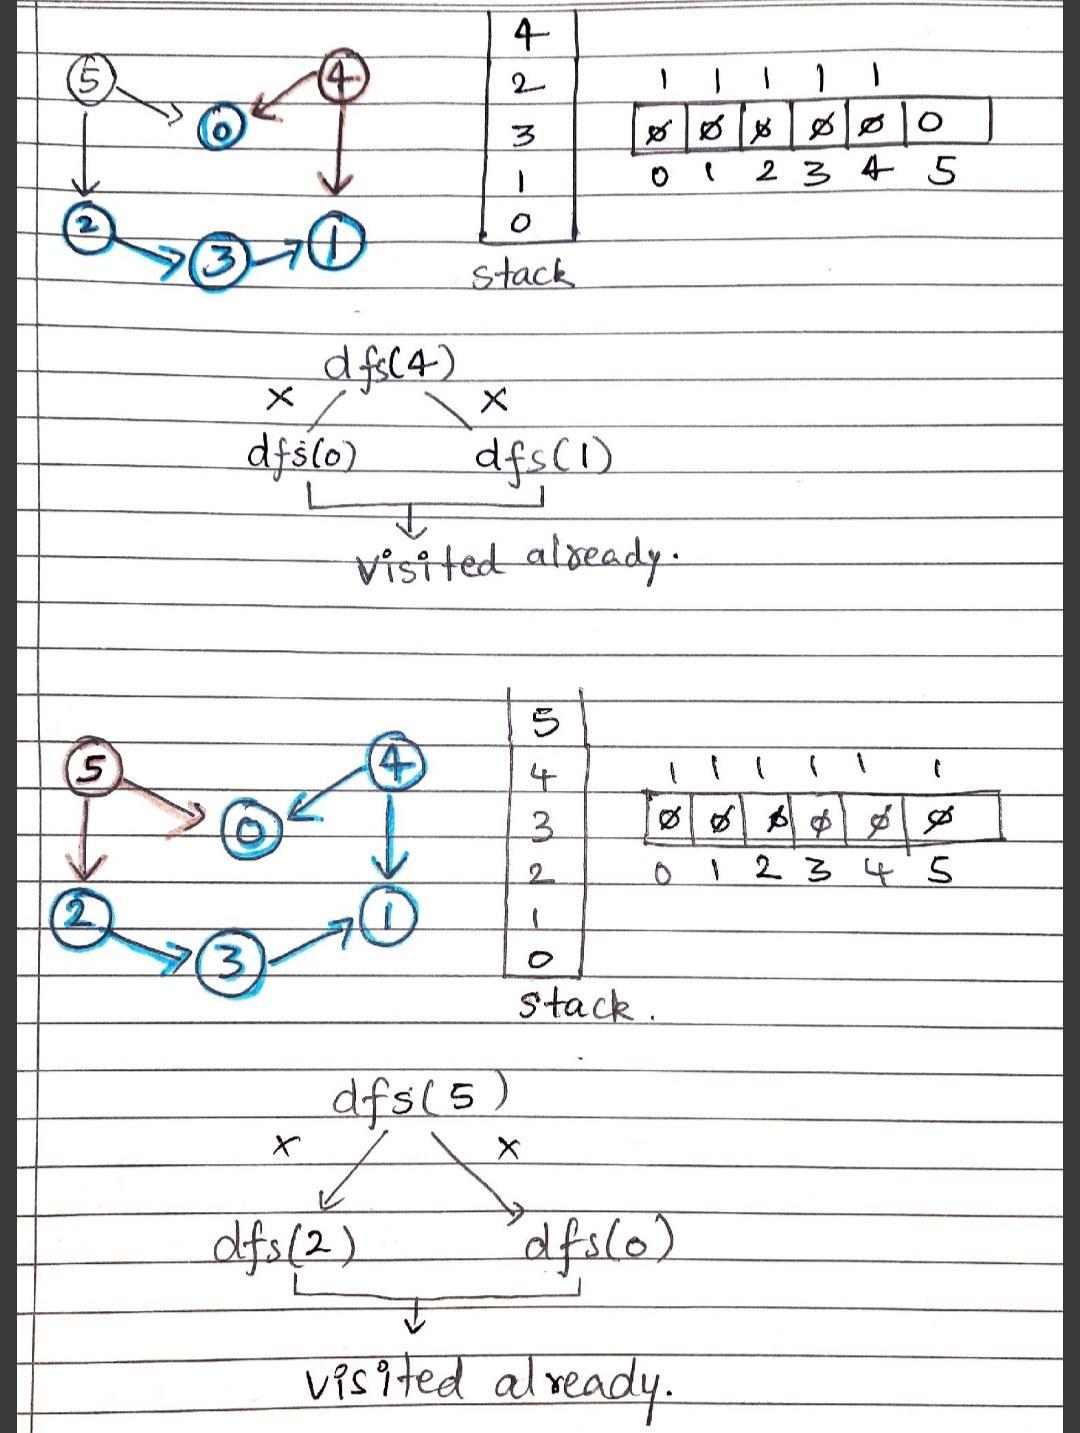 5
4
0
2
3
1
4
2
3
1
0
stack
1 1 1 1 1
0 0 0 0 0 0
0 1 2 3 4 5
dfs(4)
x x
dfs(0) dfs(1)
visited already.
5
4
0
2
3
1
5
4
3
2
1
0
stack.
1 1 1 1 1 1
0 0 0 0 0 0
0 1 2 3 4 5
dfs(5)
x x
dfs(2) dfs(0)
visited already.